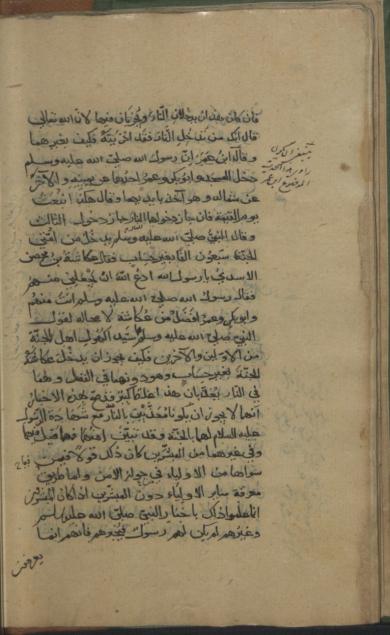 فان كان يجوز ان يدخلان النار ويخزيان فيها لان الله تعالى
قال انك من تدخل النار فقد اخزيته فكيف بغيرهما
وقال ابن عمر ان رسول الله صلى الله عليه وسلم
دخل المسجد وابو بكر وعمر احدهما عن يمينه والآخر
عن شماله وهو آخذ بايديهما وقال هكذا نبعث
يوم القيمة فان جاز دخولهما النار جاز دخول الثالث
وقال النبي صلى الله عليه وسلم يدخل من امتي
الجنة سبعون الفا بغير حساب فقال عكاشة بن محصن
الاسدي يا رسول الله ادع الله ان يجعلني منهم
فقال رسول الله صلى الله عليه وسلم انت منهم
وابو بكر وعمر افضل من عكاشة لا محالة لقول
النبي صلى الله عليه وسلم سيدا كهول اهل الجنة
من الاولين والآخرين فكيف يجوز ان يدخل عكاشة
الجنة بغير حساب وهو دونهما في الفضل وهما
في النار
انهما لا يجوز ان يكونا معذبين بالنار مع شهادة الرسول
عليه السلام لهما بالجنة وقد
وفي غيرهما من المبشرين كان ذلك قولا فيمن
سواهما من الاولياء في جواز الامن واما طريق
معرفة سائر الاولياء دون المبشرين اذ كان المبشرون
انما علموا ذلك باخبار النبي صلى الله عليه وسلم
وغيرهم لم يكن لهم رسول فيخبرهم فانهم انما
يعرفون